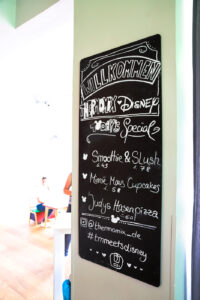 WILLKOMMEN
HAPPY Disney
Special
Smoothie & Slush
Minnie Maus Cupcakes
Judys Hasenpizza
@thermomix_de
#tmmeetsdisney